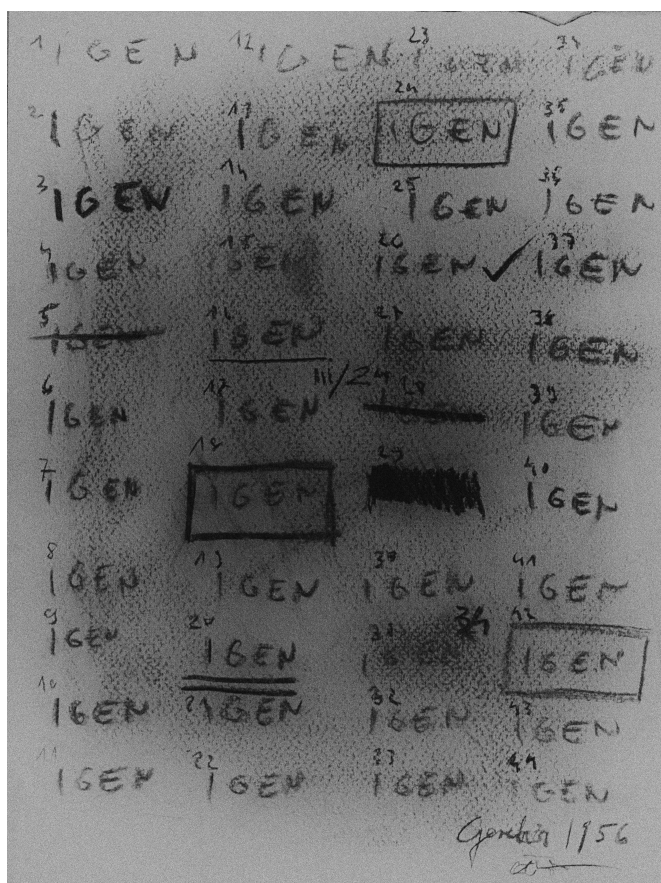 1 IGEN
2 IGEN
3 IGEN
4 IGEN
5 IGEN
6 IGEN
7 IGEN
8 IGEN
9 IGEN
10 IGEN
11 IGEN
12 IGEN
13 IGEN
14 IGEN
15 IGEN
16 IGEN
III/24
17 IGEN
18 IGEN
19 IGEN
20 IGEN
21 IGEN
22 IGEN
23 IGEN
24 IGEN
25 IGEN
26 IGEN
27 IGEN
28
29
30 IGEN
31 IGEN
32 IGEN
33 IGEN
34 IGEN
35 IGEN
36 IGEN
37 IGEN
38 IGEN
39 IGEN
40 IGEN
41 IGEN
42 IGEN
43 IGEN
44 IGEN
1956